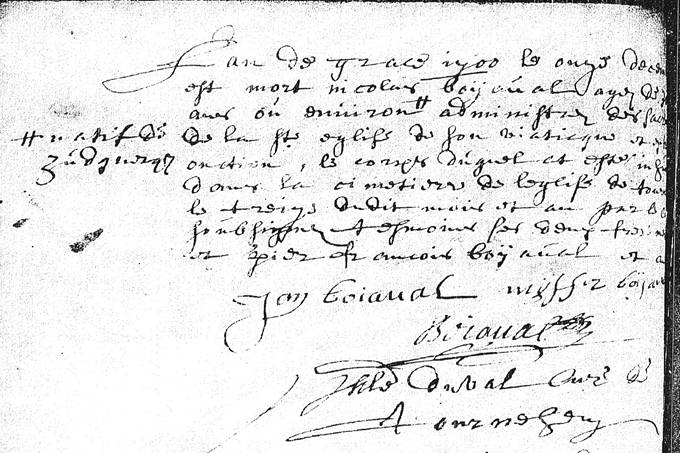 L'an de grace 1700 le onze decem
est mort nicolas boijaval agez de
ans ou environ # administrez des sac
de la ste eglise de son viaticque et
onction, le corps duquel at esté inh
dans la cimetiere de leglise de tour
le treize dudit mois et an par
soubsigné tesmoins ses deux freres
et pier francois boijaval et a
# natif de
Zudquerque
Jan boiaval
boiaval
duval Curé de
Tournehem